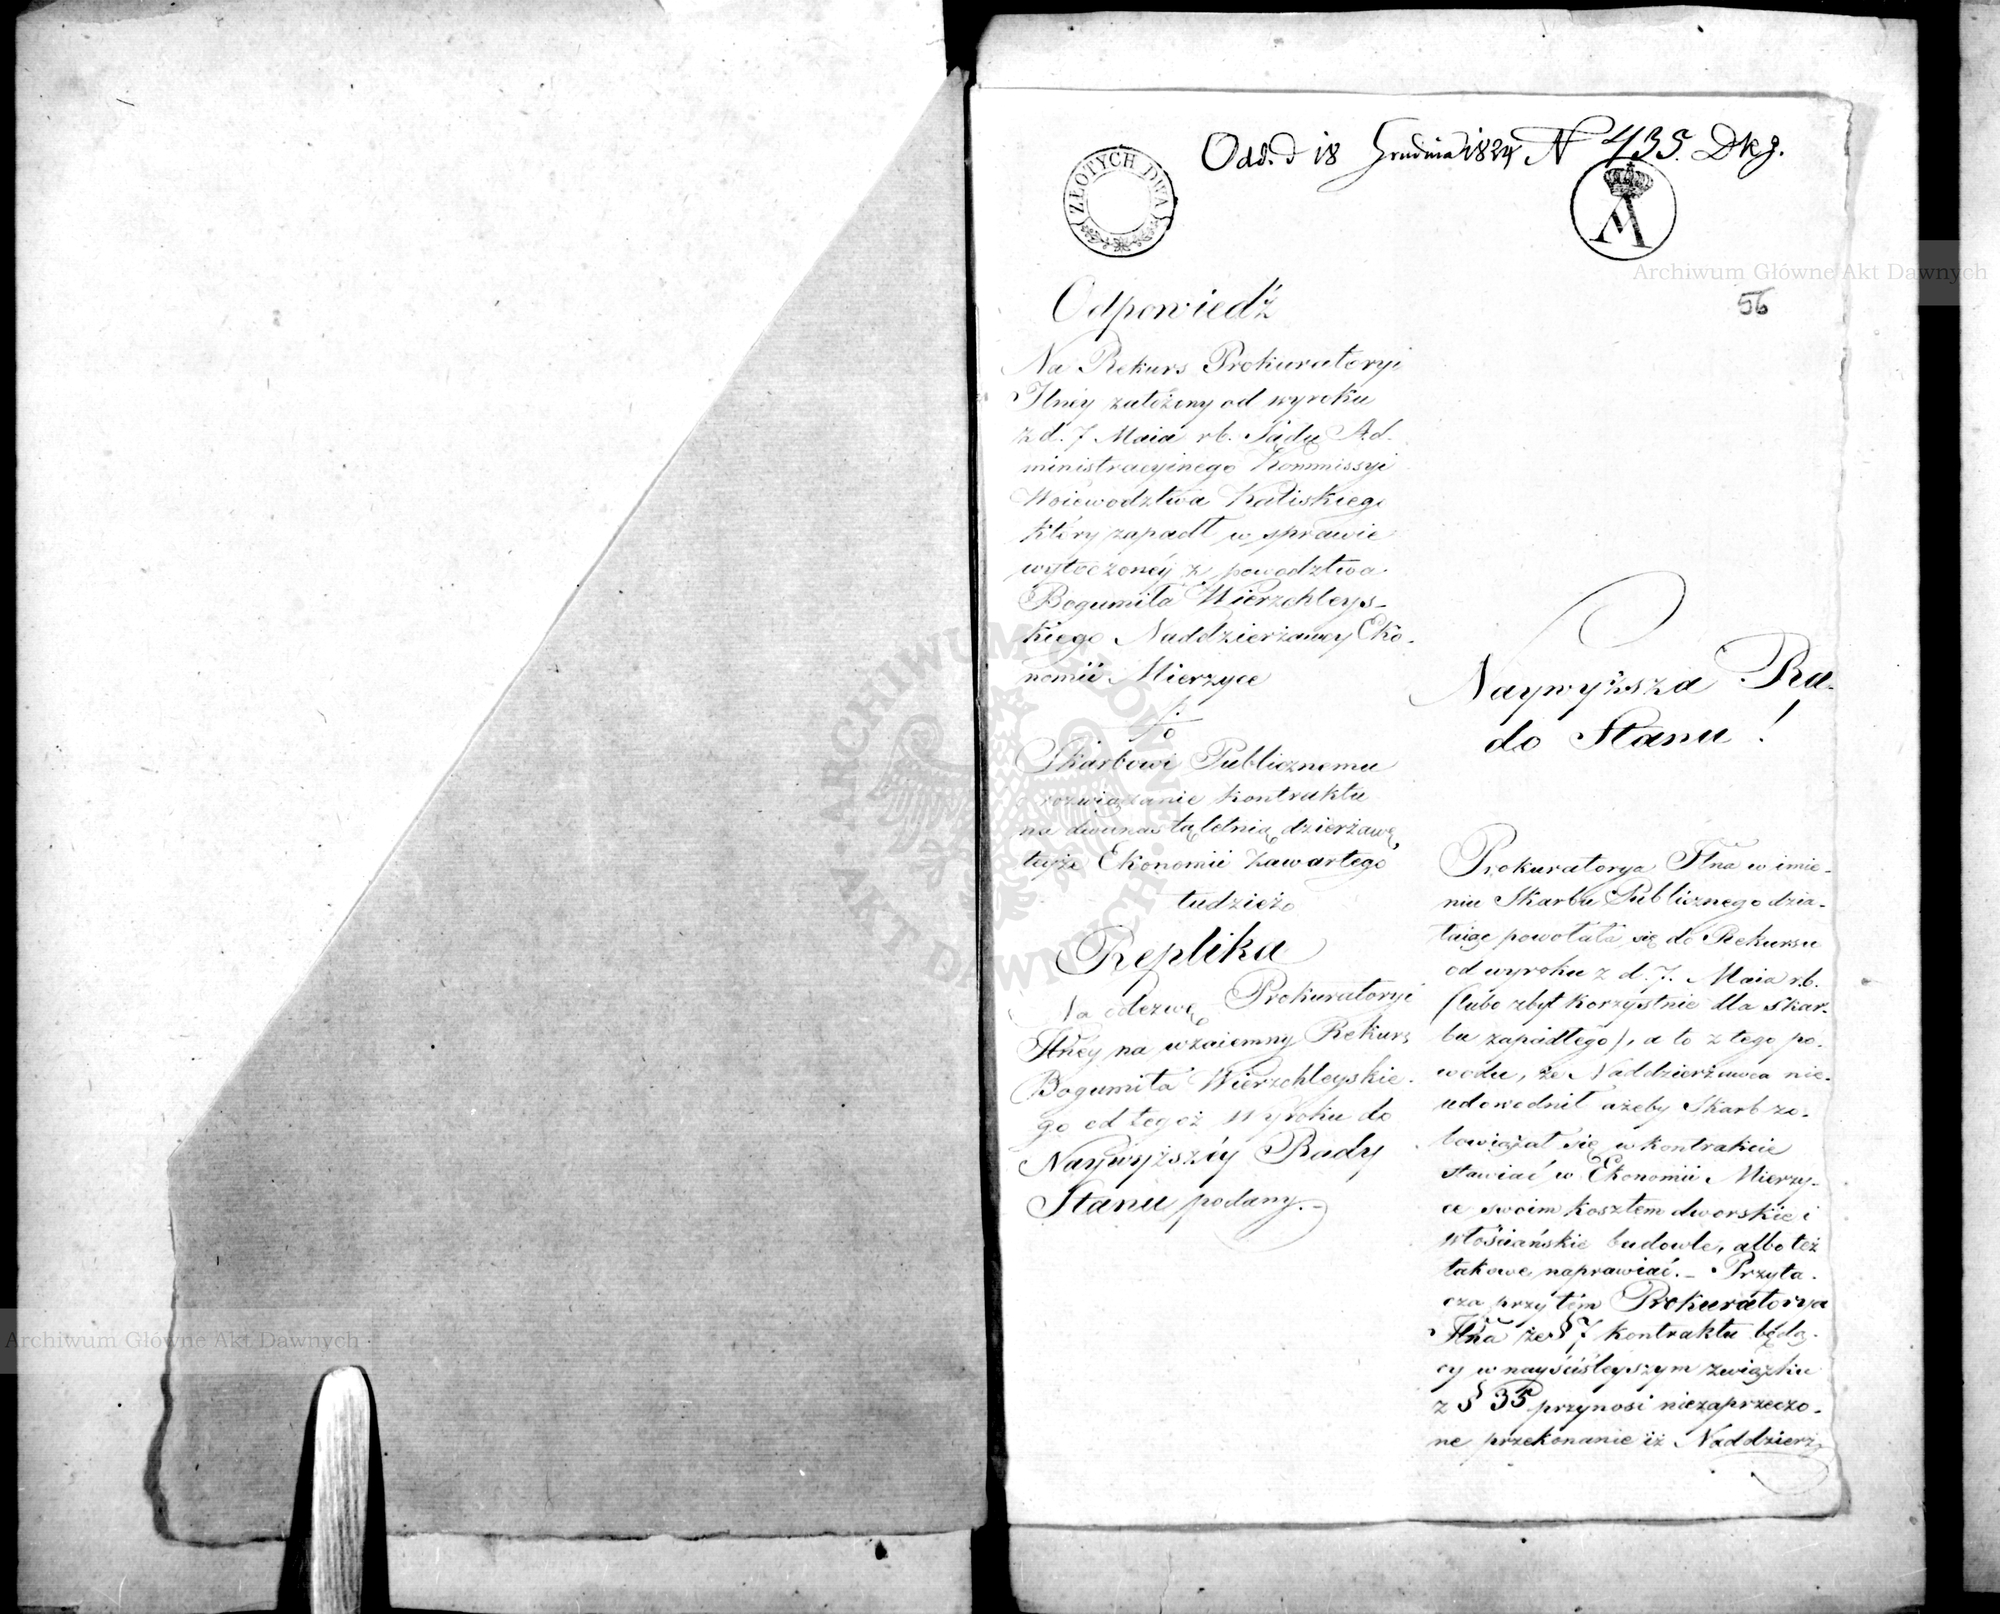 Odd. d 18 Grudnia 1824 N 435. Dkg.
ZŁOTYCH DWA
56
Odpowiedź
Na Rekurs Prokuratoryi
Jlnéy założony od wyroku
z d. 7 Maia rb. Sądu Ad-
ministracyinego Kommissyi
Woiewodztwa Kaliskiego
który zapadł w sprawie
wytoczonéy z powodztwa
Bogumiła Wierzchleys-
kiego Naddzierżawcy Eko-
nomii Mierzyce
Skarbowi Publicznemu
o rozwiązanie kontraktu
na dwunastąletnią dzierżawę
teyże Ekonomii zawartego
tudzież
Replika
Na odezwę Prokuratoryi
Jlnéy na wzaiemny Rekurs
Bogumiła Wierzchleyskie-
go od tegoż Wyroku do
Naywyższéy Rady
Stanu podany.-
Naywyższa Ra-
do Stanu!
Prokuratorya Jlna w imie-
niu Skarbu Publicznego dzia-
łaiąc powołała się do Rekursu
od wyroku z d. 7. Maia r.b.
(lubo zbyt korzystnie dla skar-
bu zapadłego), a to z tego po-
wodu, że Naddzierżawca nie-
udowodnił ażeby Skarb zo-
bowiązał się w kontrakcie
stawiać w Ekonomii Mierzy-
ce swoim kosztem dworskie i
włościańskie budowle, albo też
takowe naprawiać.- Przyta-
cza przytém Prokuratorya
Jlna że § 7 kontraktu będą-
cy w nayściśleyszym związku
z § 35 przynosi niezaprzeczo-
ne przekonanie iż Naddzierż
Archiwum Główne Akt Dawnych
Archiwum Główne Akt Dawnych
ARCHIWUM GŁÓWNE AKT DAWNYCH